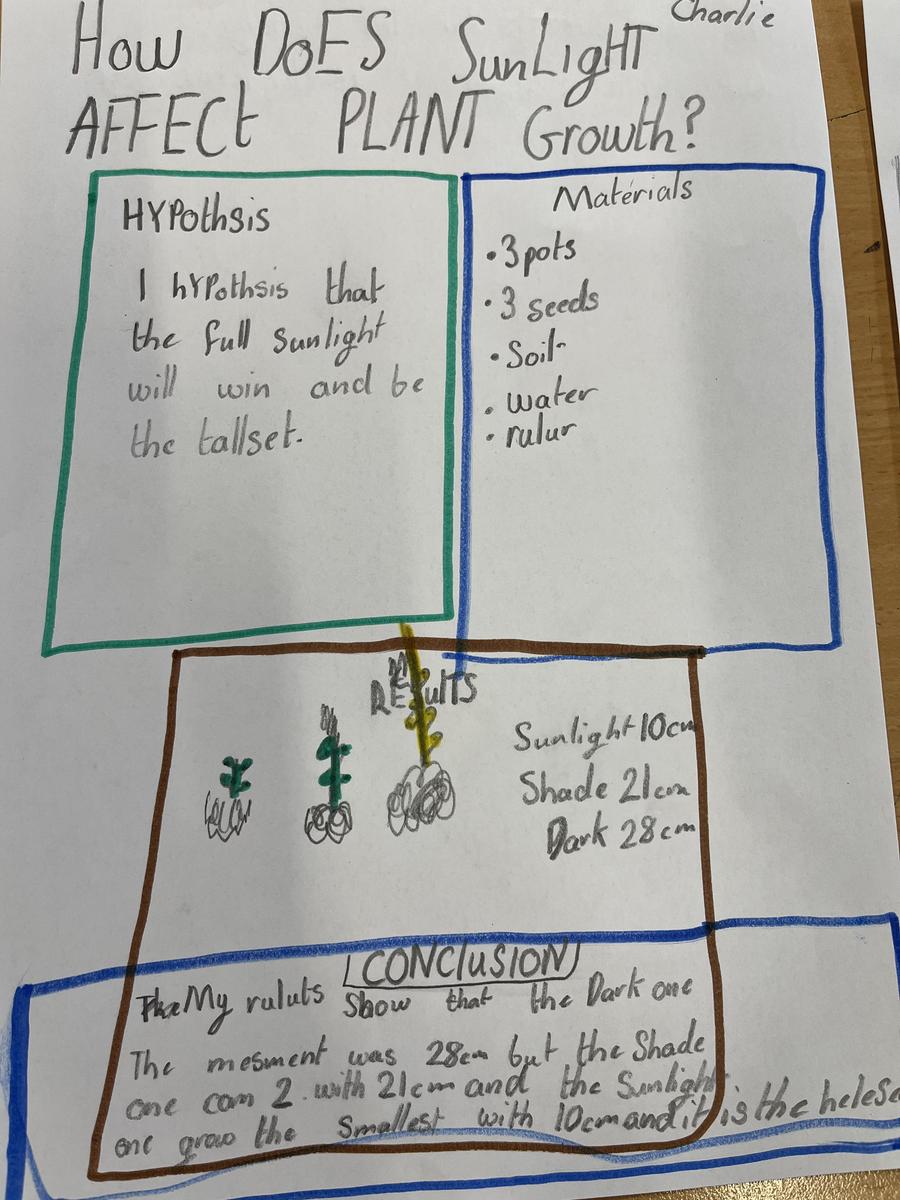 Charlie
How DoES SunLigHT
AFFECt PLANT Growth?
HYPothsis
I hYPothsis that
the full sunlight
will win and be
the tallset.
Materials
• 3 pots
• 3 seeds
• Soil
• water
• rulur
REsulTS
Sunlight 10cm
Shade 21cm
Dark 28cm
CONClUSION
My ruluts Show that the Dark one
The mesment was 28cm but the Shade
one com 2. with 21cm and the Sunlight
one grow the Smallest with 10cm and it is the